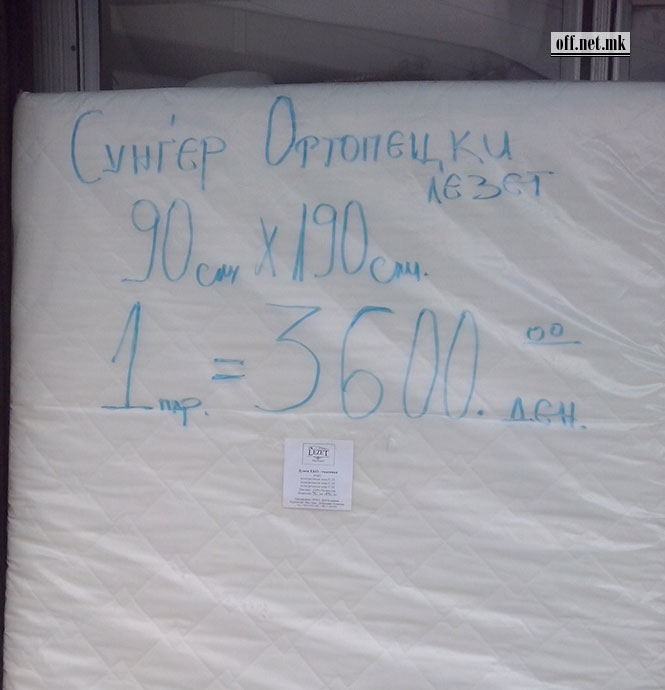 off.net.mk
Сунѓер Ортопецки
лезет
90см X 190см.
1 пар. = 3600.00 ден.
LEZET